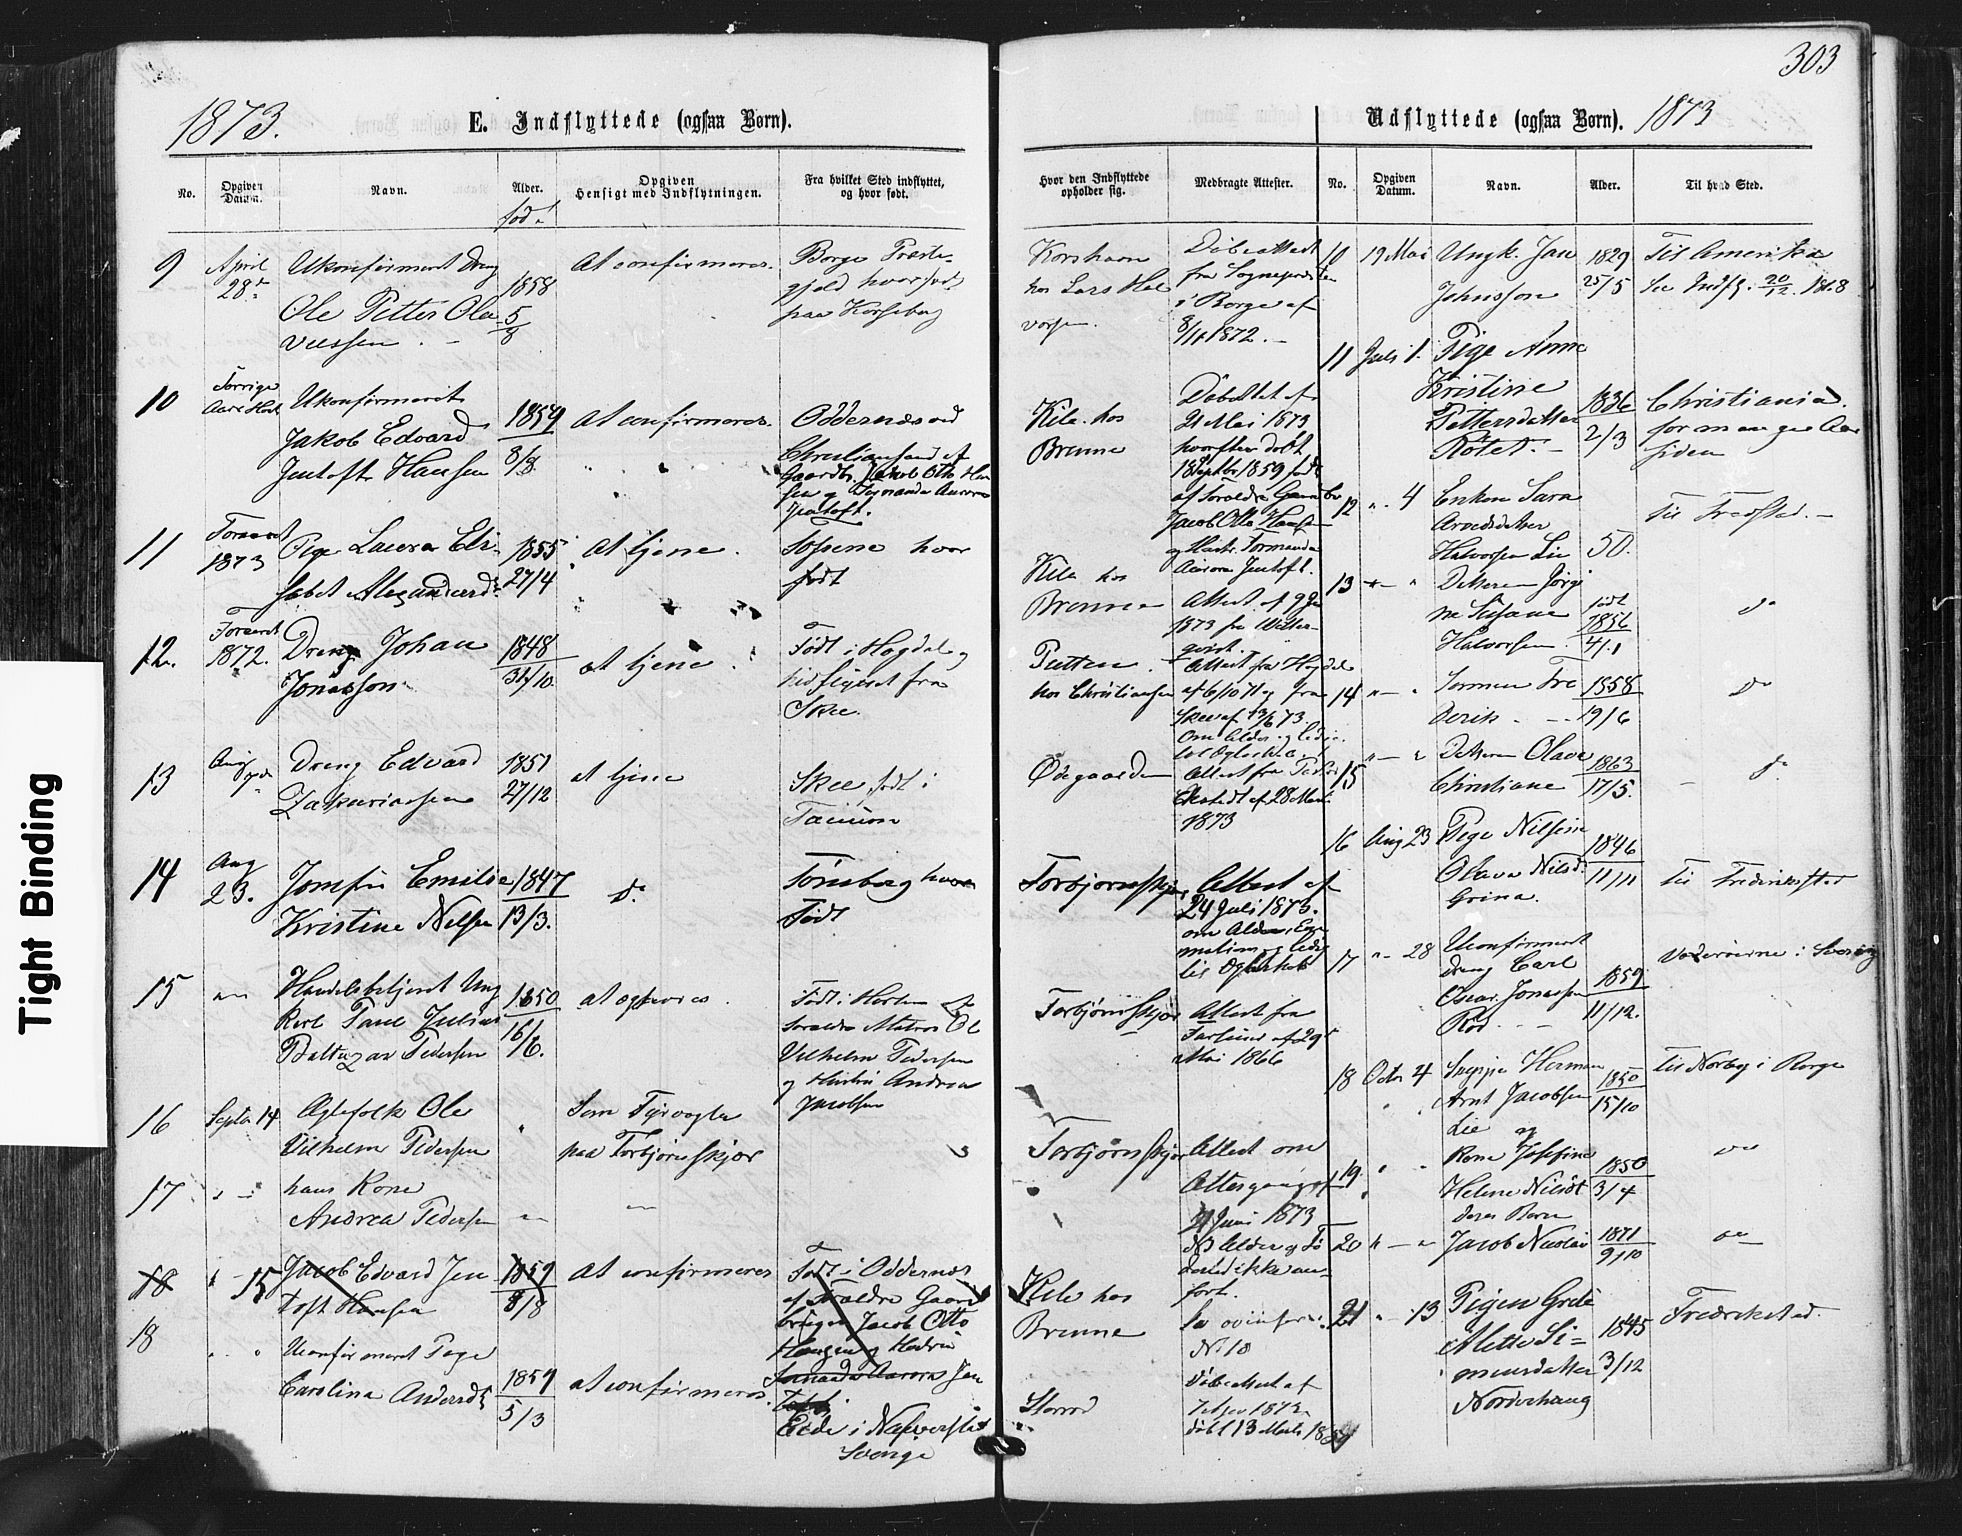 303
1873.
E. Indflyttede (ogsaa Børn).
Udflyttede (ogsaa Børn). 1873
No.
Opgiven Datum.
Navn.
Alder.
født
Opgiven
Hensigt med Indflytningen.
Fra hvilket Sted indflyttet,
og hvor født.
Hvor den Indflyttede
opholder sig.
Medbragte Attester.
No.
Opgiven Datum.
Navn.
Alder.
Til hvad Sted.
9
April
28
Ukonfirmeret Dreng
Ole Petter Ola
vussen
1858
5/8
At confirmeres.
Borge Præste-
gjeld hvor født
paa Korseberg
Korshavn
hos Lars Hal
vorsen.
Døbeattest
fra Sognepresten
i Borge af
8/11 1872.
10
Forrige
Aars Høst
Ukonfirmeret
Jakob Edvard
Jentoft Hansen
1859
8/8
At confirmeres.
Oddernæs ved
Christiansand af
Gaardbr. Jakob Otto Han
sen og Aurora
Jentoft.
Kile hos
Brenne
Døbeattest af
21 Mai 1873
hvorefter døbt
18 Septbr. 1859 født
af Foreldre Gaardbr
Jacob Otto Hansen
og Hustr.
Aurora Jentoft.
11
Foraaret
1873
Pige Laura Eli-
sabet Alexandersd
1855
27/4
At tjene.
hvor
født
Kile hos
Brenne
Attest af 9 Jan
1873 fra
12.
Foraaret
1872.
Dreng Johan
Jonasson
1848
31/10
at tjene
Født i Hogdal og
hidflyttet fra
Skee.
Putten
hos Christiansen
Attest fra Hogdal
af 6/10 71 og fra
Skee af 13/6 73.
Om Alder og ledig
13
Aug
Dreng Edvard
Zakariassen
1851
27/12
at tjene
Skee, født i
Tanum
Ødegaarden
Attest fra
af 28 Marts
1873
14
Aug
23.
Jomfru Emilie
Kristine Nilsen
1847
13/3.
Do
Tønsberg hvor
Født.
Torbjørnskjær
Attest af
24 Juli 1873.
om Alder,
og ledig
til Ægteskab
15
Handelsbetjent Ung
Karl Paul Julius
Baltazar Pedersen
1850
16/6.
at
Født i Horten af
Foreldre Matros Ol
Vilhelm Pedersen
og Hustru Andrea
Jacobsen
Torbjørnskjær
Attest fra
af 29
Mai 1866
16
Septbr 14
Ægtefolk Ole
Vilhelm Pedersen
Som Fyrvogter
paa Torbjørnskjær
Torbjørnskjær
Attest om
Altergang
21 Juni 1873
NB Alder og Fø
dested ikke an-
ført.
17
hans Kone
Andrea Pedersen
18
15
Jacob Edvard Jen
toft Hansen
1859
8/8
At confirmeres
Født i Oddernæs
af Foreldre Gaard
bruger Jacob Otto
Hansen og Hustru
Aurora Jen
toft.
Kile hos
Brenne
Se ovenfor
No 10
18
Uconfirmeret Pige
Carolina Andersdt
1859
5/3
at confirmeres.
Eide i Naverstad
Sverige
Storød
Døbeattest af
1873
døbt 13 Marts 1859
10
19 Mai
Ungk. Jan
Johnsson
1829
25/5
Til Amerika
se Indfl. 20/12 1868
11
Juli 1.
Pige Anne
Kristine
Pettersdatter
Rötet.
1836
2/3
Christiania.
for mange Aar
siden
12
4
Enken Sara
Arvedsdatter
Halvorsen Lie
50.
Til Fredsted.
13
Datteren Jørgi
ne Susane
Halvorsen
født
1856
4/1
do
14
Sønnen Fre
derik
1858
19/6
Do
15
Datteren Olave
Christiane
1863
17/5.
do
16
Aug 23
Pige Nilsine
Olava Nilsd.
Grina.
1846
11/11
til Frederikstad
17
28
Uconfirmeret
dreng Carl
Oscar Jonassen
Röd
1859
11/12.
i Sverig
18
Octbr 4
Herman
Arnt Jacobsen
Lie og
1850
15/10
til Norby i Borge
19.
Kone Josefine
Helene Nilsdt
deres Barn
1850
3/4
do
20
Jacob Nicolai
1871
9/10
do
21
13
Pigen Grete
Mette Si-
mensdatter
Norderhaug
1845
3/12
Fredrikstad.
Tight Binding